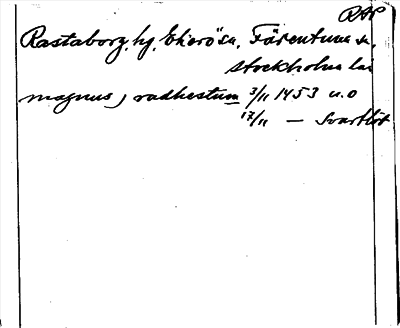 RAP
Rastaborg, hg, Ekerö sn, Färentuna sn,
Stockholms län
magnus, radhestum 3/11 1453 u.o
17/11 — Svartlöt